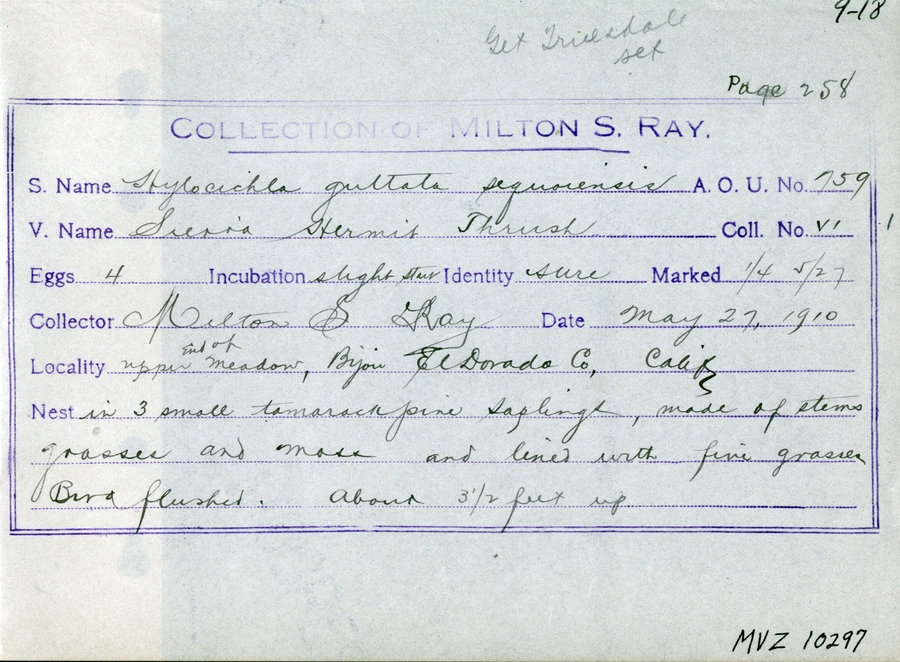 9-18
Get Truesdale
set
Page 258
COLLECTION OF MILTON S. RAY.
S. Name Hylocichla guttata sequoiensis A. O. U. No. 759
V. Name Sierra Hermit Thrush Coll. No. VI 1
Eggs 4 Incubation slight start Identity sure Marked 1/4 5/27
Collector Milton S Ray Date May 27, 1910
Locality upper End of meadow, Bijou El Dorado Co, Calif
Nest in 3 small tamarack pine saplings, made of stems
grasses and moss and lined with fine grasses
Bird flushed. About 3 1/2 feet up
MVZ 10297